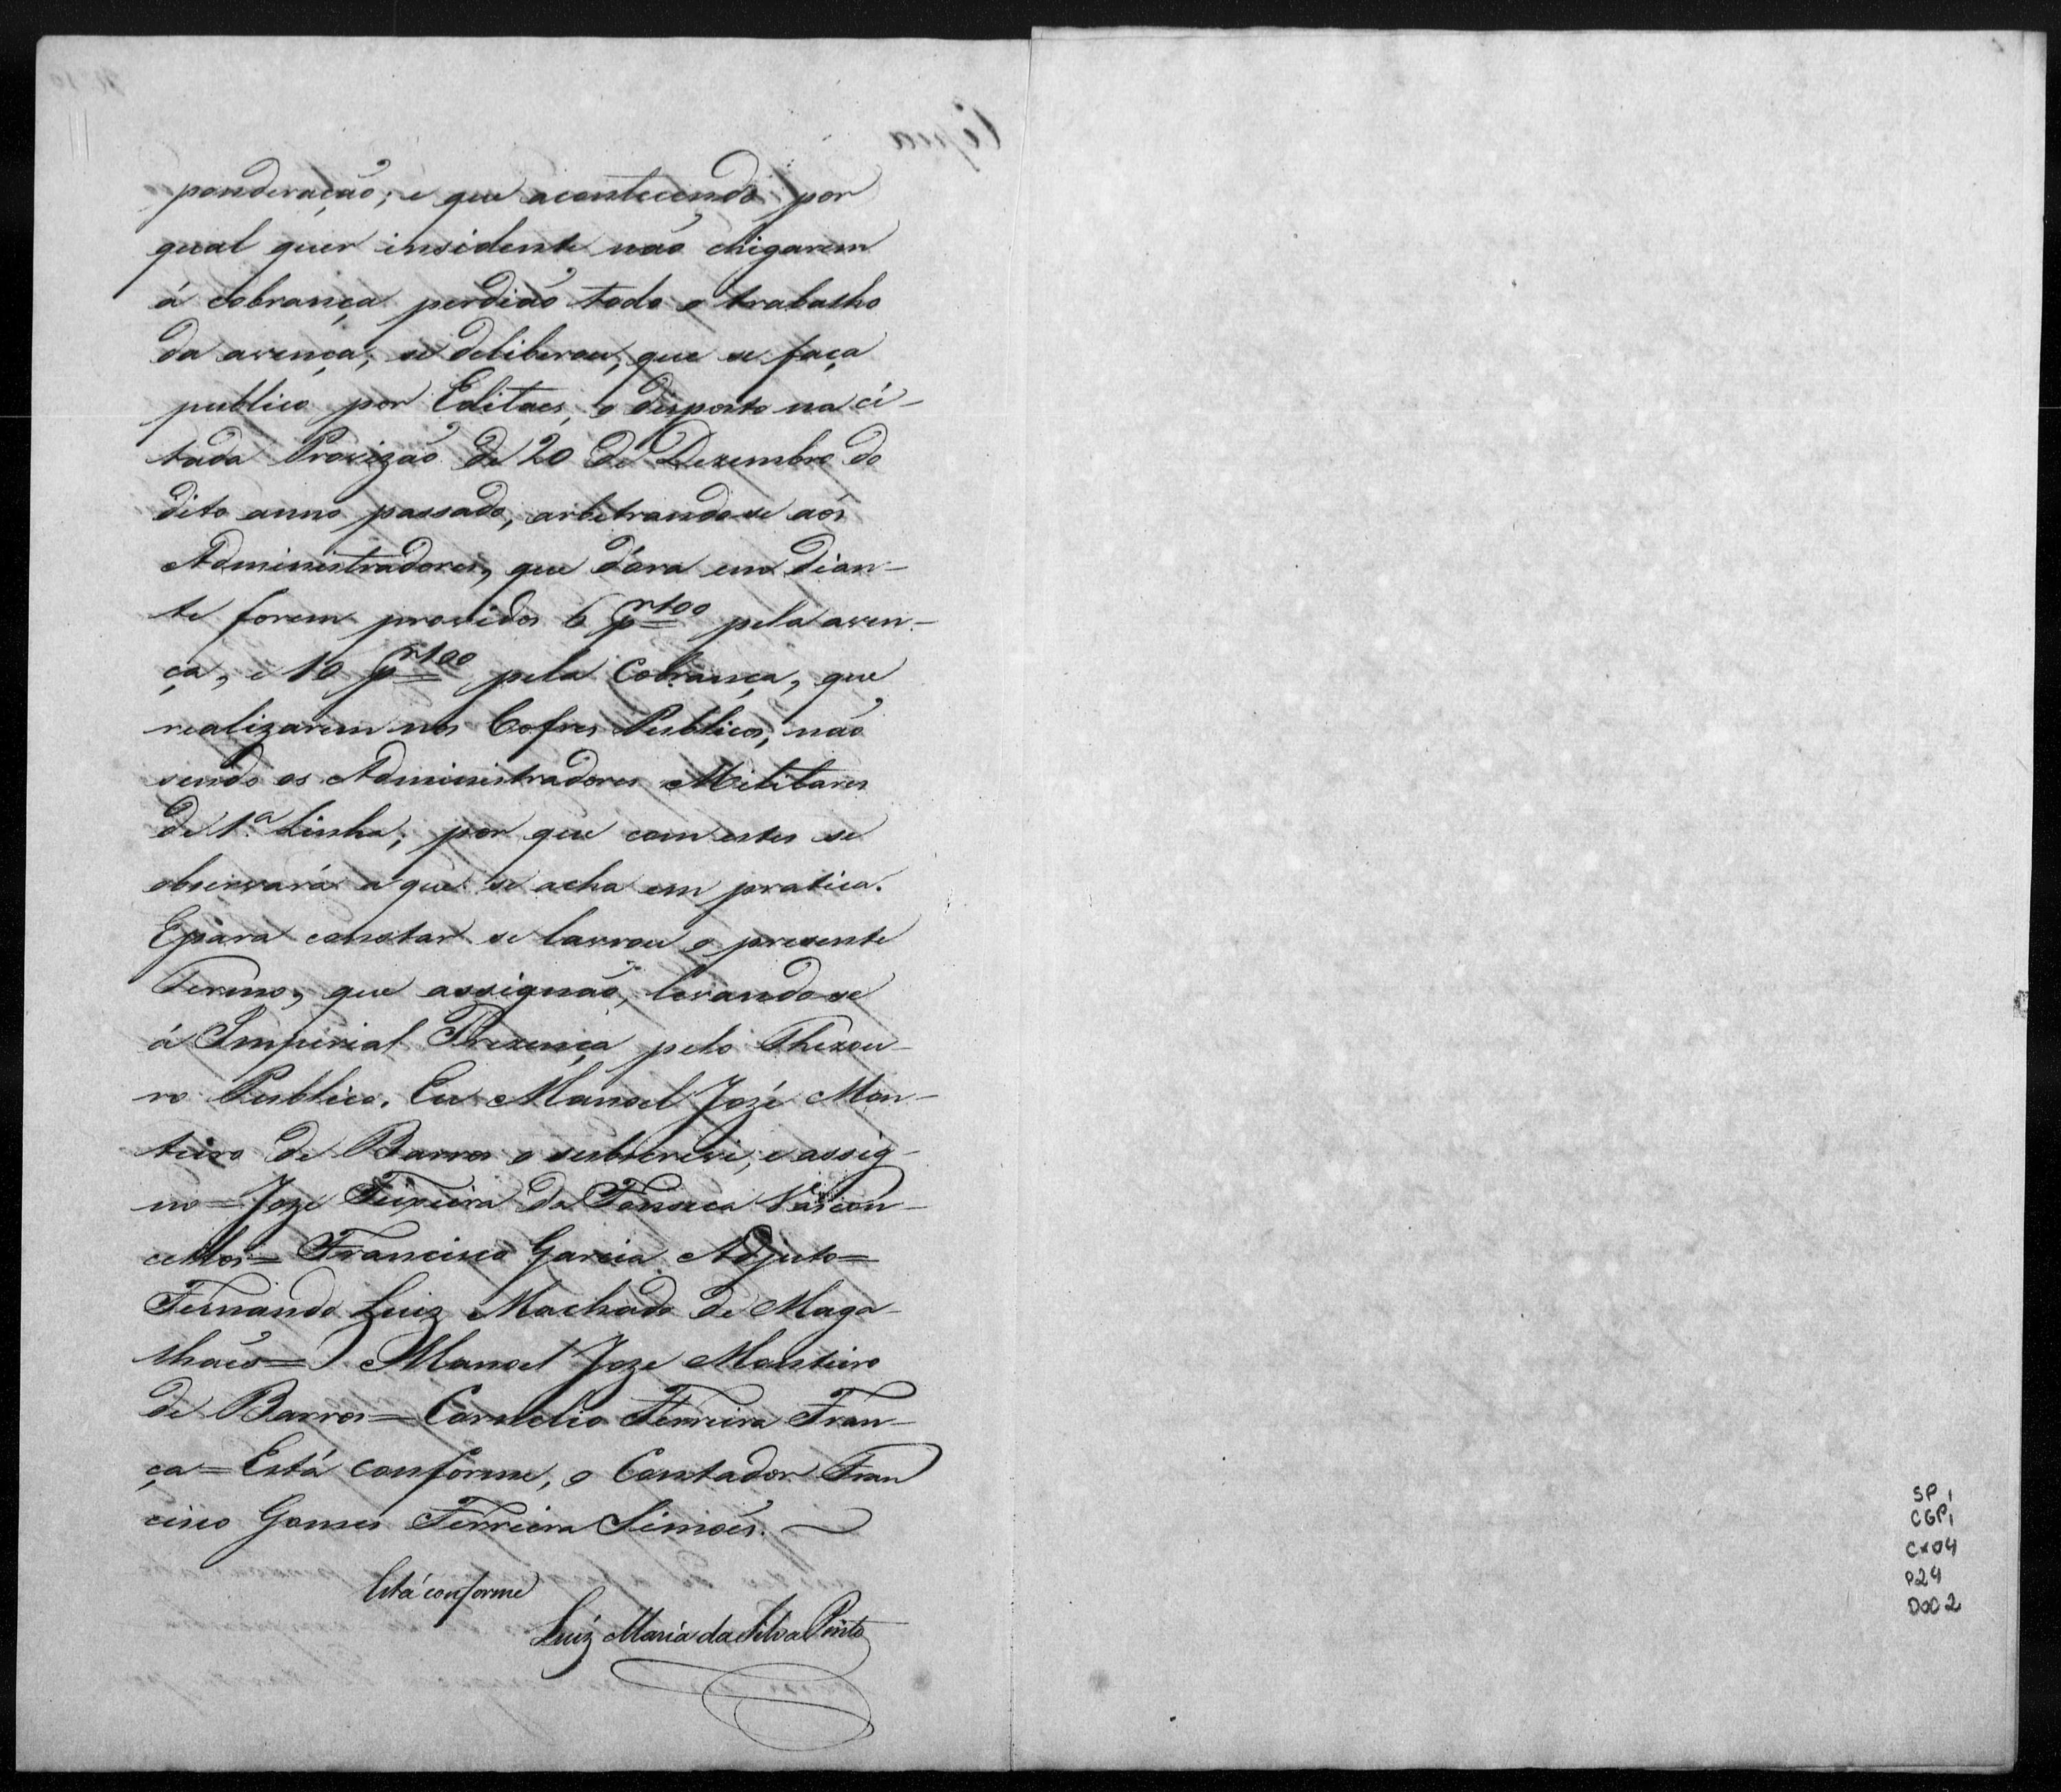 ponderação; e que acontecendo por
qual quer insidente não chigarem
á cobrança perdião todo o trabalho
da avença; se deliberou, que se faça
publico por Editaes, o disposto na ci-
tada Provizão de 20 de Dezembro do
dito anno passado, arbitrando se aós
Administradores, que dóra em dian-
te forem providos 6 pr 100 pela aven-
ça, e 10 pr 100 pela Cobrança, que
realizarem nos Cofres Publicos, não
sendo os Administradores Militares
de 1.ª Linha; por que com estes se
observará a que se acha em pratica.
E para constar se lavrou o presente
Termo, que assignão, levando se
á Imperial Prezença pelo Thezou-
ro Publico. Eu Manoel Jozé Mon-
teiro de Barros o subscrevi, e assig-
no = Joze Teixeira da Fonseca Vascon-
cellos = Francisco Garcia Adjuto =
Fernando Luiz Machado de Maga-
lhaẽs = Manoel Joze Monteiro
de Barros = Cornelio Ferreira Fran-
ça = Está conforme, o Contador Fran
cisco Gomes Ferreira Simoẽs.
Está conforme
Luiz Maria da Silva Pinto
SP 1
CGP1
Cx04
P24
Doc 2